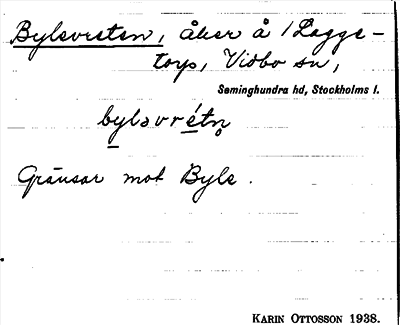 Bylsvreten, åker å Lagge-
torp, Vidbo sn,
Seminghundra hd, Stockholms l.
bylsvrétn̥
Gränsar mot Byle.
KARIN OTTOSSON 1938.